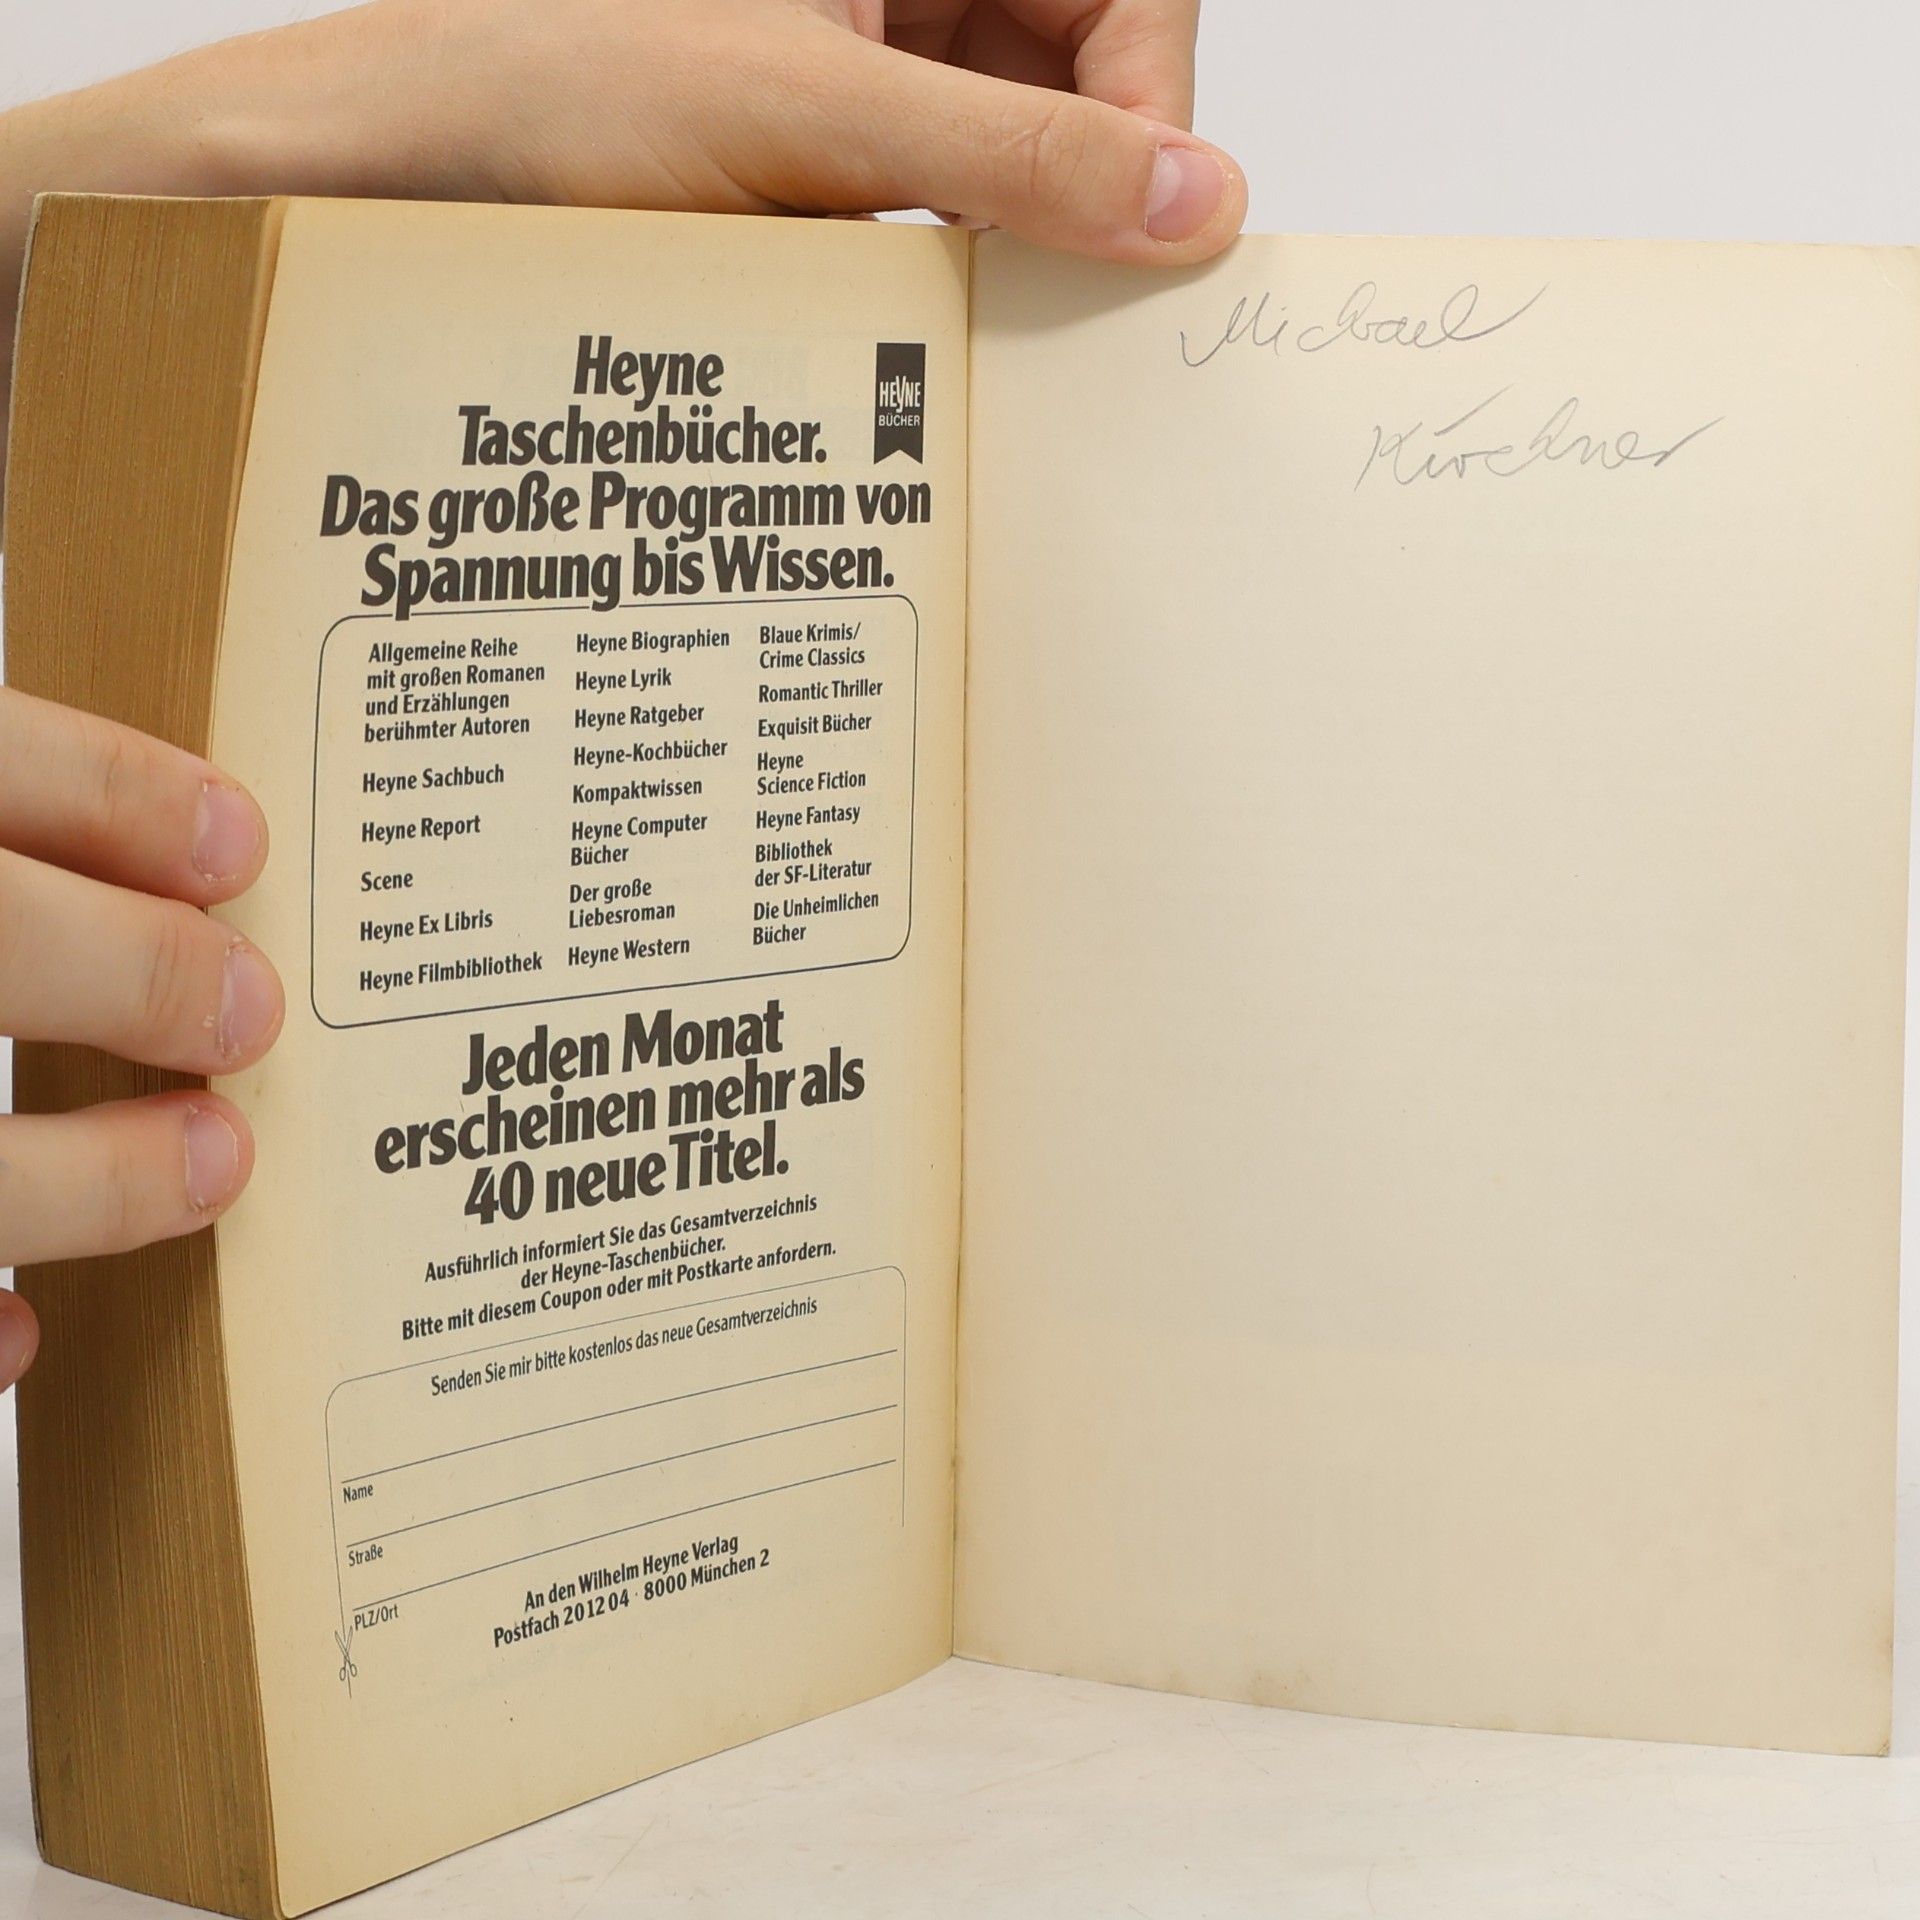 Heyne
Taschenbücher.
Das große Programm von
Spannung bis Wissen.
HEYNE
BÜCHER
Allgemeine Reihe
mit großen Romanen
und Erzählungen
berühmter Autoren
Heyne Sachbuch
Heyne Report
Scene
Heyne Ex Libris
Heyne Filmbibliothek
Heyne Biographien
Heyne Lyrik
Heyne Ratgeber
Heyne-Kochbücher
Kompaktwissen
Heyne Computer
Bücher
Der große
Liebesroman
Heyne Western
Blaue Krimis/
Crime Classics
Romantic Thriller
Exquisit Bücher
Heyne
Science Fiction
Heyne Fantasy
Bibliothek
der SF-Literatur
Die Unheimlichen
Bücher
Jeden Monat
erscheinen mehr als
40 neue Titel.
Ausführlich informiert Sie das Gesamtverzeichnis
der Heyne-Taschenbücher.
Bitte mit diesem Coupon oder mit Postkarte anfordern.
Senden Sie mir bitte kostenlos das neue Gesamtverzeichnis
Name
Straße
PLZ/Ort
An den Wilhelm Heyne Verlag
Postfach 20 12 04 · 8000 München 2
Michael
Kirchner